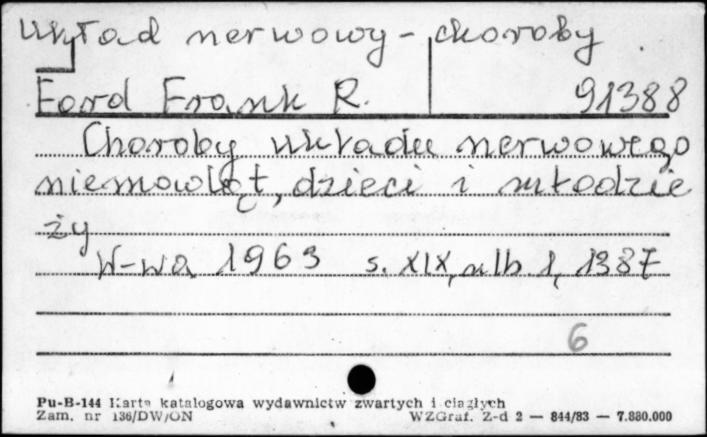 Układ nerwowy - choroby
Ford Frank R. 91388
Choroby układu nerwowego
niemowląt, dzieci i młodzie
ży
W-wa 1963 s. XIX, nlb. 1, 1387
6
Pu-B-144 Karta katalogowa wydawnictw zwartych i ciągłych
Zam. nr 136/DW/ON WZGraf. Z-d 2 — 844/83 — 7.880.000